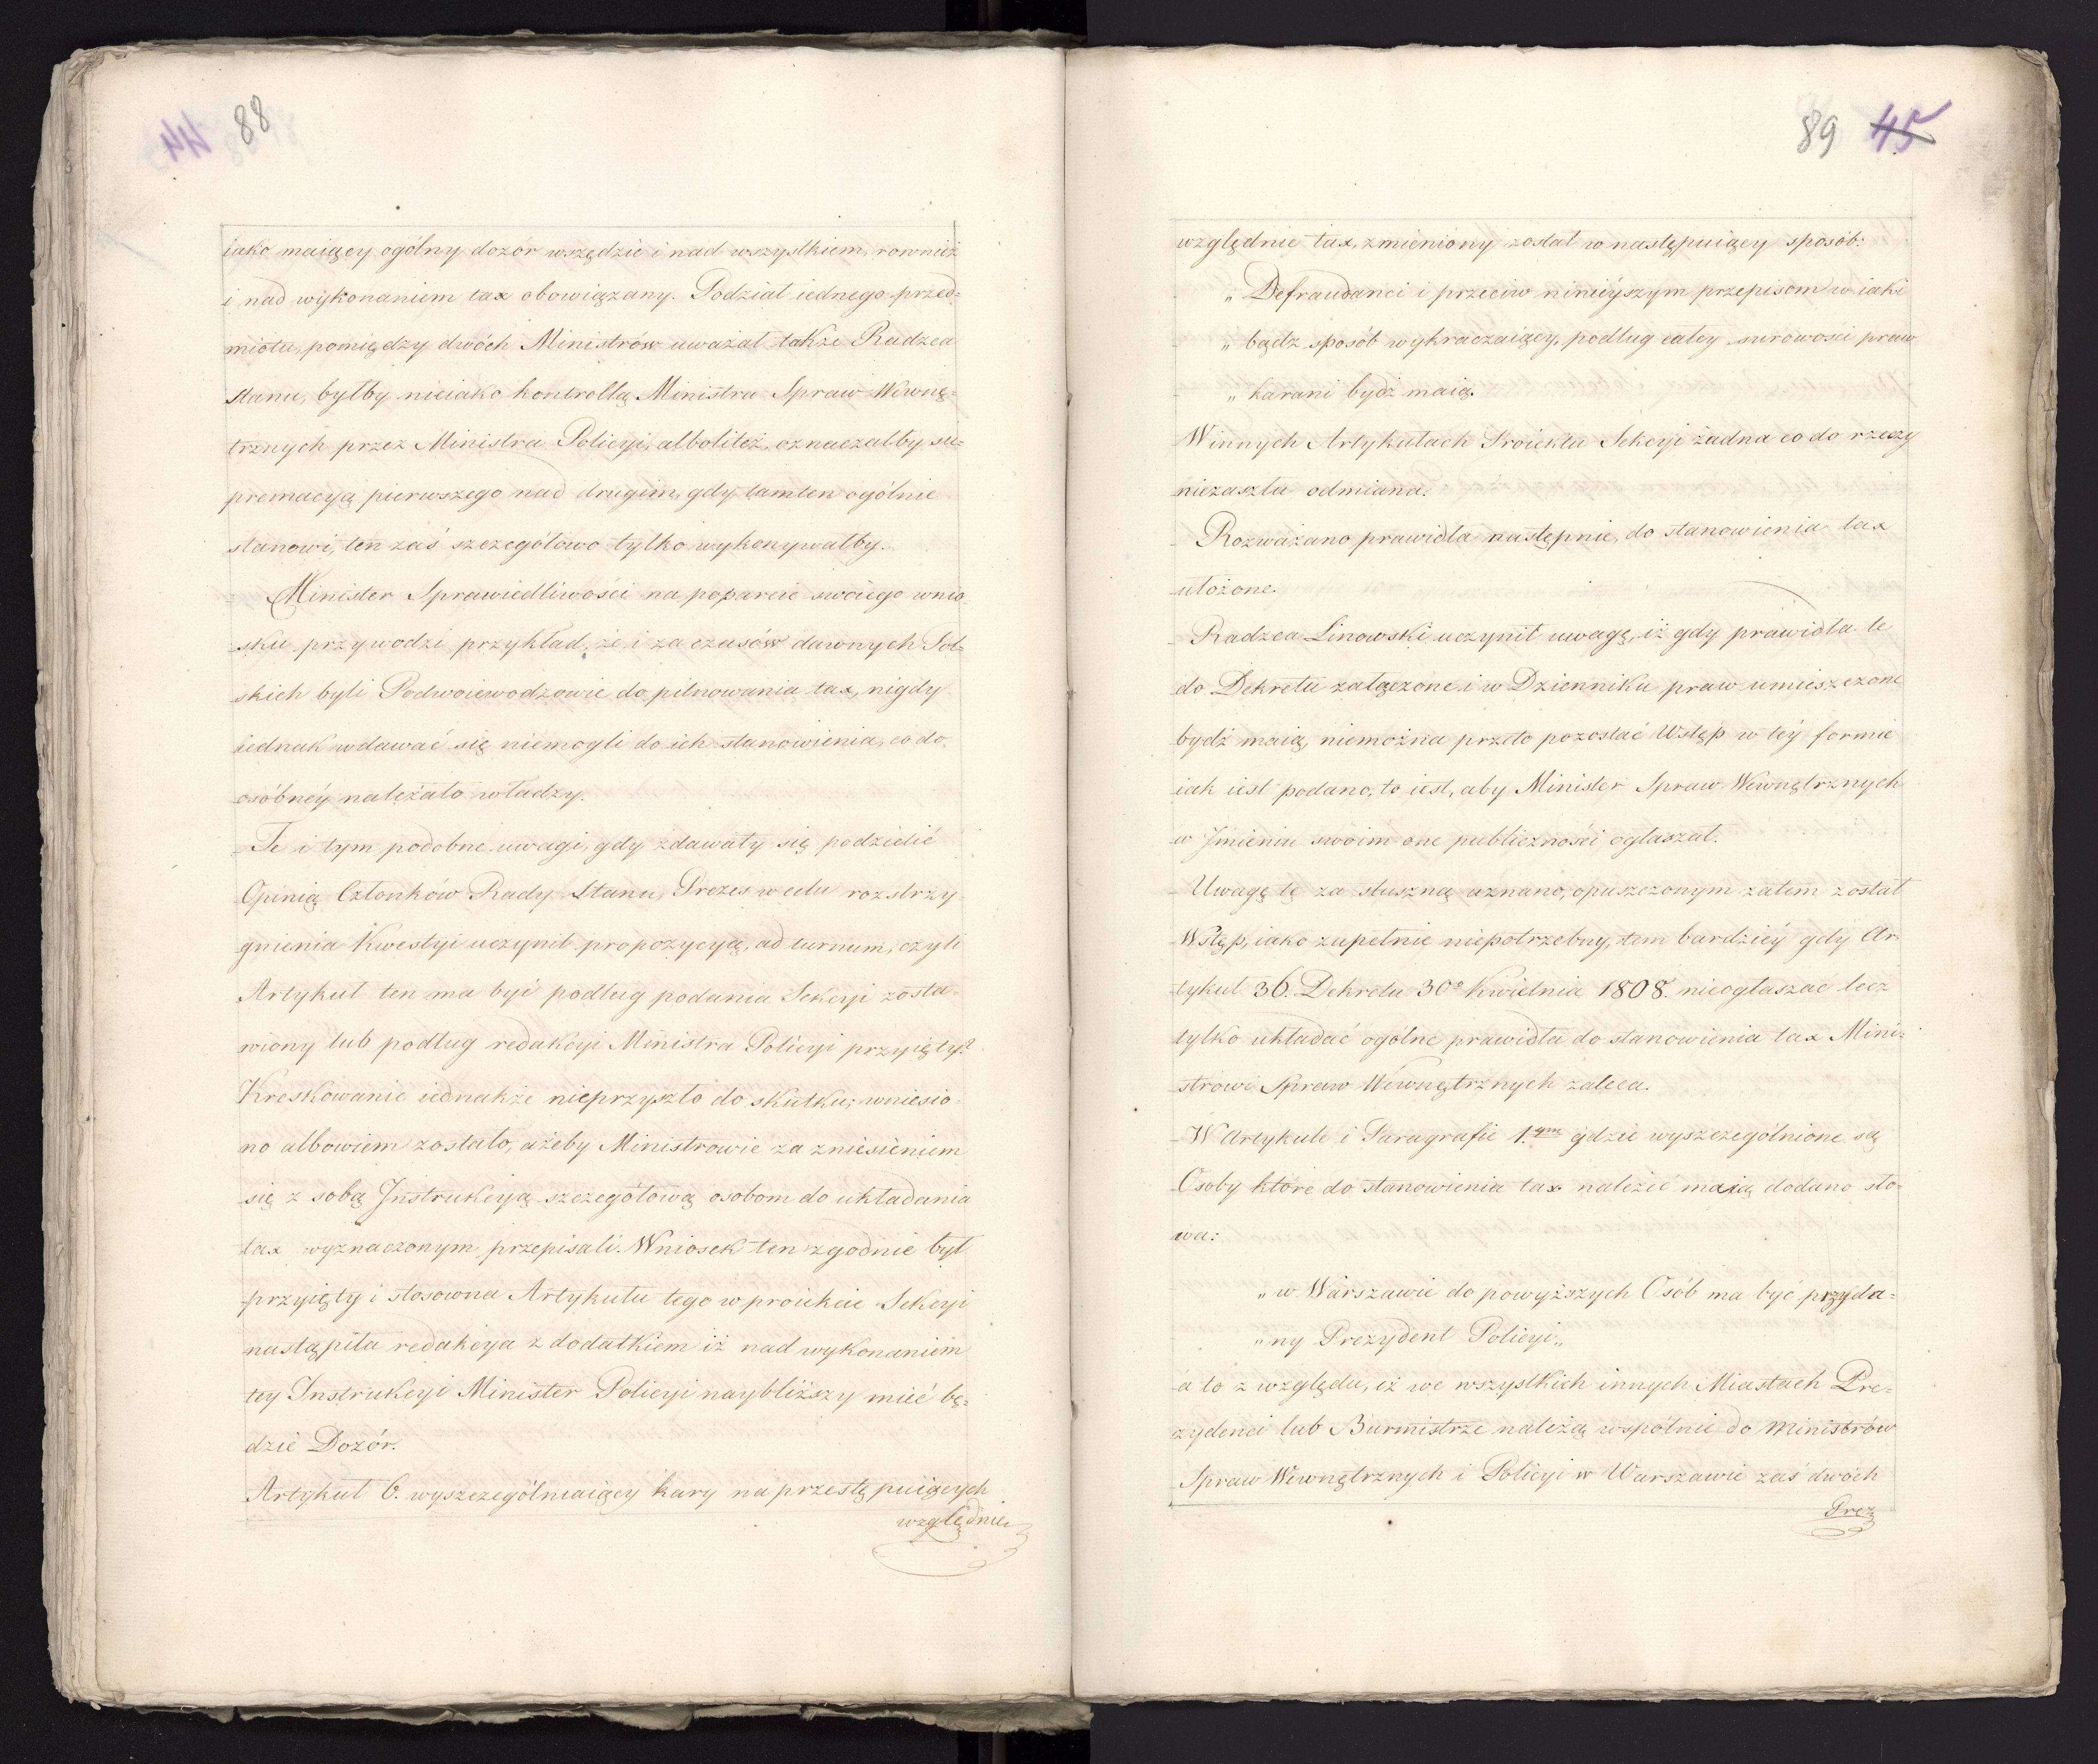 88
iako maiący ogólny dozór wszędzie i nad wszystkiem, rownież
i nad wykonaniem tax obowiązany. Podział iednego przed=
miotu, pomiędzy dwóch Ministrów uważał także Radzca
stanu, byłby nieiako kontrollą Ministra Spraw Wewnę=
trznych przez Ministra Policyi, albolitéż, oznaczałby su=
premacyą pierwszego nad drugim, gdy tamten ogólnie
stanowi, ten zaś szczegółowo tylko wykonywałby.
Minister Sprawiedliwości na poparcie swoiego wnio
sku przywodzi przykład, że i za czasów dawnych Pol=
skich byli Podwoiewodzowie do pilnowania tax, nigdy
iednak wdawać się niemogli do ich stanowienia, co do
osóbnéy należało władzy.
Te i tym podobne uwagi, gdy zdawały się podzielić
Opinią Członków Rady Stanu, Prezes w celu rozstrzy
gnienia Kwestyi uczynił propozycyą, ad turnum, czyli
Artykuł ten ma byi podług podania Sekcyi zosta=
wiony lub podług redakcyi Ministra Policyi przyięty?
Kreskowanie iednakże nieprzyszło do skutku; wniesio=
no albowiem zostało, ażeby Ministrowie za zniesieniem
się z sobą Jnstrukcyą szczegółową osobom do układania
tax wyznaczonym przepisali. Wniosek ten zgodnie był
przyięty i stosowna Artykułu tego w proiekcie Sekcyi
nastąpiła redakcya z dodatkiem iż nad wykonaniem
tey Instrukcyi Minister Policyi naybliższy mieć bę=
dzie Dozór.
Artykuł 6. wyszczególniaiący kary na przestępuiących
względnie
89 45
względnie tax, zmieniony został w następuiący sposób:
„ Defraudanci i przeciw ninieyszym przepisom w iaki
„ bądz sposób wykraczaiący, podług całey surowosci praw
„ karani bydź maią.
Winnych Artykułach Proiektu Sekcyi żadna co do rzeczy
niezaszła odmiana.
Rozważano prawidła następnie, do stanowienia tax
ułożone.
Radzca Linowski uczynił uwagę, iż gdy prawidła te
do Dekretu załączone i w Dzienniku praw umieszczone
bydź maią, niemożna przeto pozostać Wstęp w téy formie
iak iest podano, to iest, aby Minister Spraw Wewnętrznych
w Jmieniu swoim one publiczności ogłaszał.
Uwagę tę za słuszną uznano, opuszczonym zatem został
Wstęp, iako zupełnie niepotrzebny, tem bardziéy gdy Ar
tykuł 36. Dekretu 30º Kwietnia 1808. nieogłaszać lecz
tylko układać ogólne prawidła do stanowienia tax Mini=
strowi Spraw Wewnętrznych zaleca.
W Artykule i Paragrafie 1.ym gdzie wyszczególnione są
Osoby które do stanowienia tax należeć maią dodano sło=
wa:
„ w Warszawie do powyższych Osób ma być przyda=
„ ny Prezydent Policyi„
a to z względu, iż we wszystkich innych Miastach Pre=
zydenci lub Burmistrze należą wspólnie do Ministrów
Spraw Wewnętrznych i Policyi w Warszawie zaś dwóch
Prez